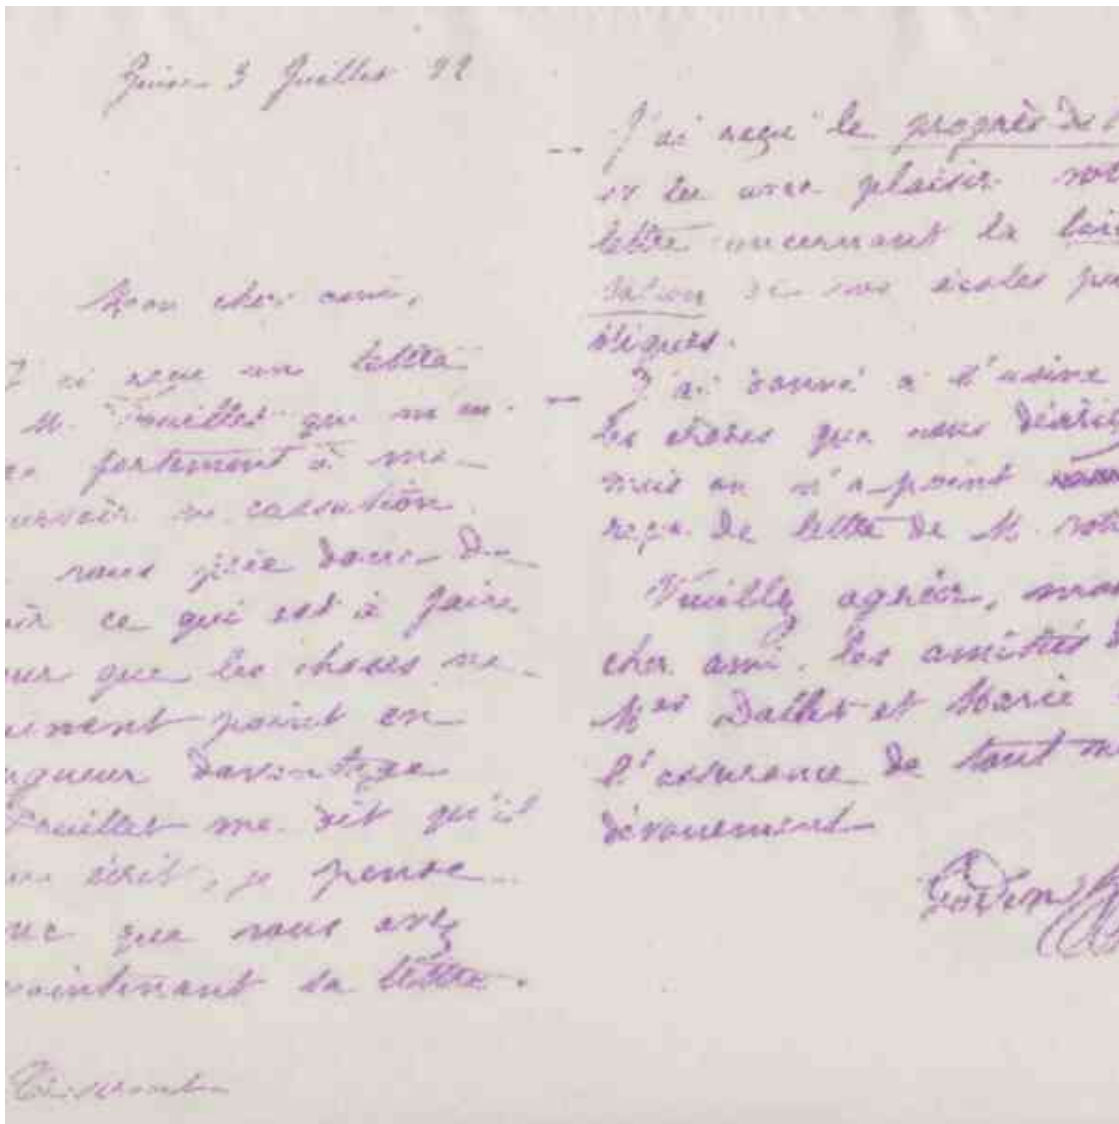 Guise 3 Juillet 82
Mon cher ami,
J'ai reçu une lettre
M. Trouillet qui m'en-
fortement à me
pourvoir en cassation.
vous prie donc de
ce qui est à faire
pour que les choses ne
point en
longueur davantage
Trouillet me dit qu'il
écrit, je pense
que vous avez
maintenant sa lettre.
Tisserant
J'ai reçu le progrès de l
et lu avec plaisir vot
lettre concernant la laïci
sation de nos écoles pu
bliques.
J'ai donné à l'usine
les choses que vous désirez
mais on n'a point
reçu de lettre de M. votre
Veuillez agréer, mon
cher ami, les amitiés d
Mes Dallet et Marie
l'assurance de tout m
dévouement
Godin